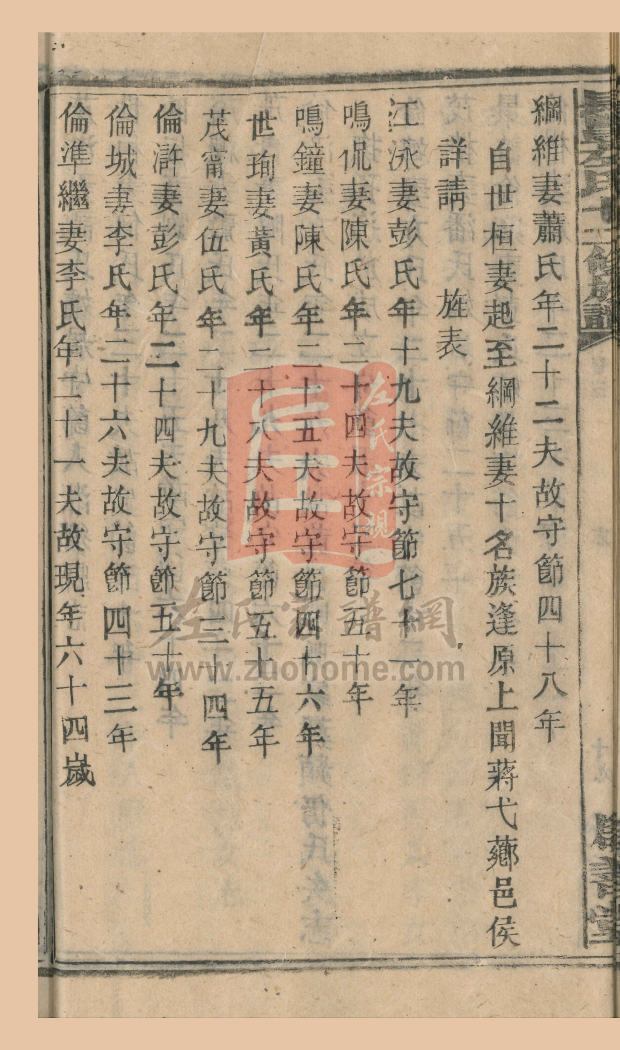 綱維妻蕭氏年二十二夫故守節四十八年
自世桓妻起至綱維妻十名族逢原上聞蔣弋薌邑侯
詳請 旌表
江泳妻彭氏年十九夫故守節七十一年
鳴侃妻陳氏年二十四夫故守節五十年
鳴鐘妻陳氏年二十五夫故守節四十六年
世珣妻黃氏年二十八夫故守節五十五年
茂甯妻伍氏年二十九夫故守節三十四年
倫滸妻彭氏年二十四夫故守節五十年
倫城妻李氏年二十六夫故守節四十三年
倫準繼妻李氏年二十一夫故現年六十四歲
左氏宗親
左氏家譜網
www.zuohome.com